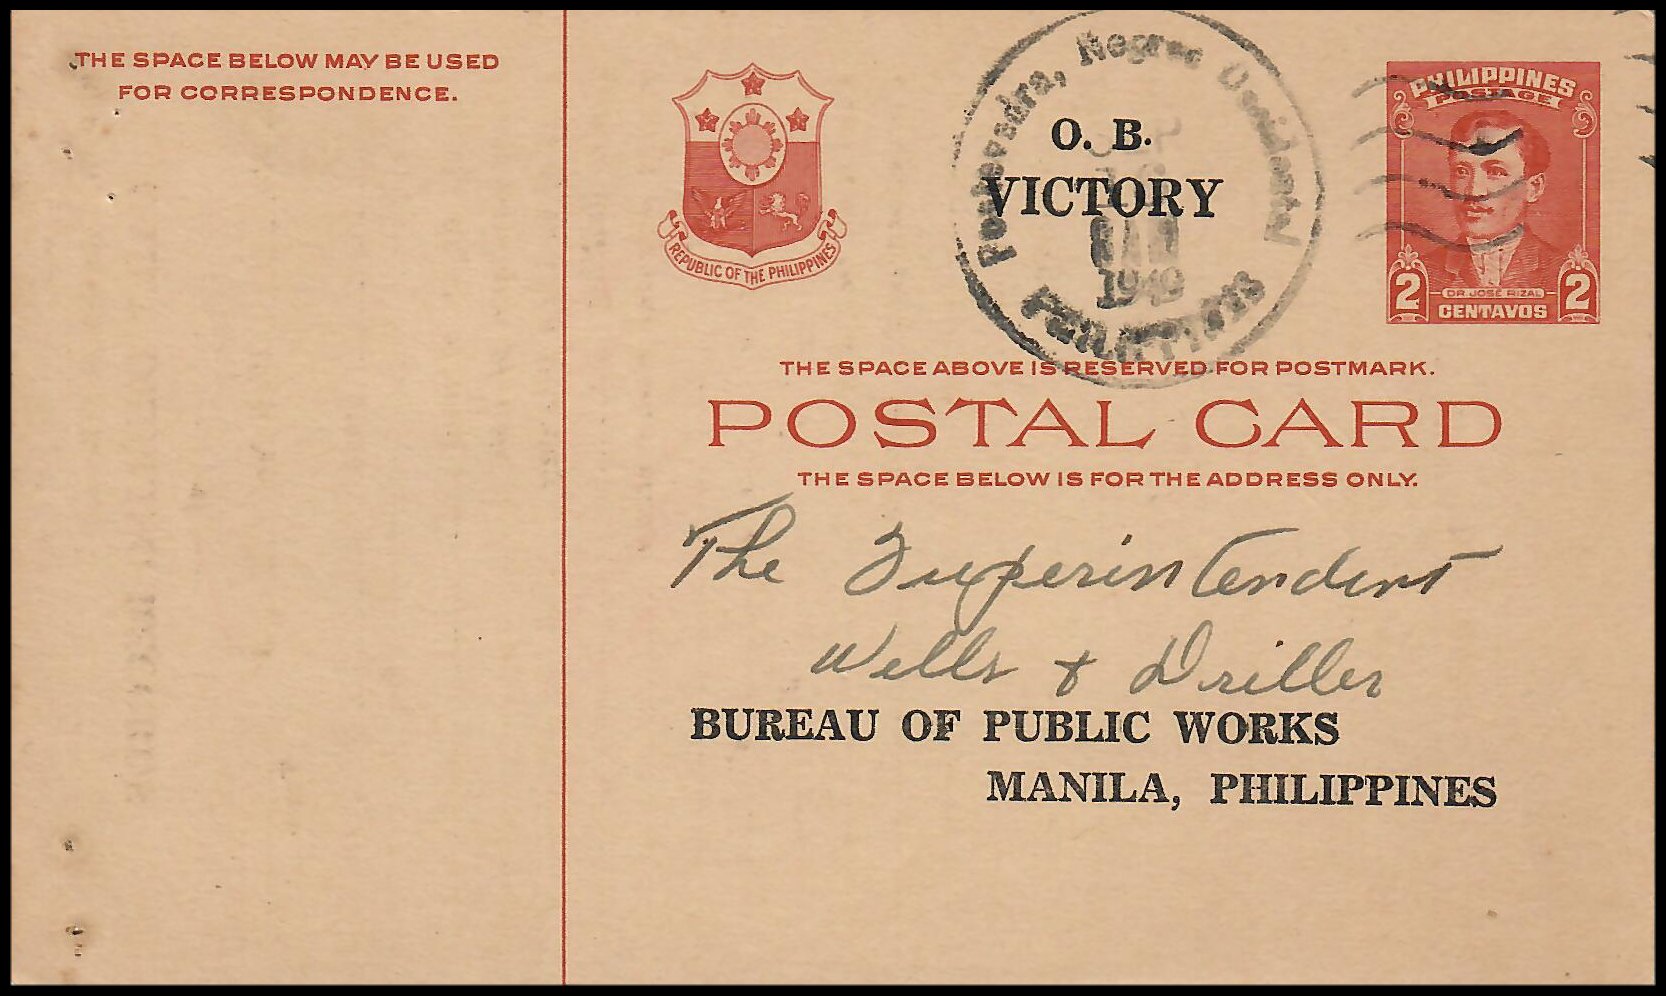 THE SPACE BELOW MAY BE USED
FOR CORRESPONDENCE.
REPUBLIC OF THE PHILIPPINES
Pontevedra, Negros Occidental
O. B.
VICTORY
JAN
1949
PHILIPPINES
PHILIPPINES
POSTAGE
DR. JOSÉ RIZAL
2 CENTAVOS 2
THE SPACE ABOVE IS RESERVED FOR POSTMARK.
POSTAL CARD
THE SPACE BELOW IS FOR THE ADDRESS ONLY.
The Superintendent
Wells & Driller
BUREAU OF PUBLIC WORKS
MANILA, PHILIPPINES